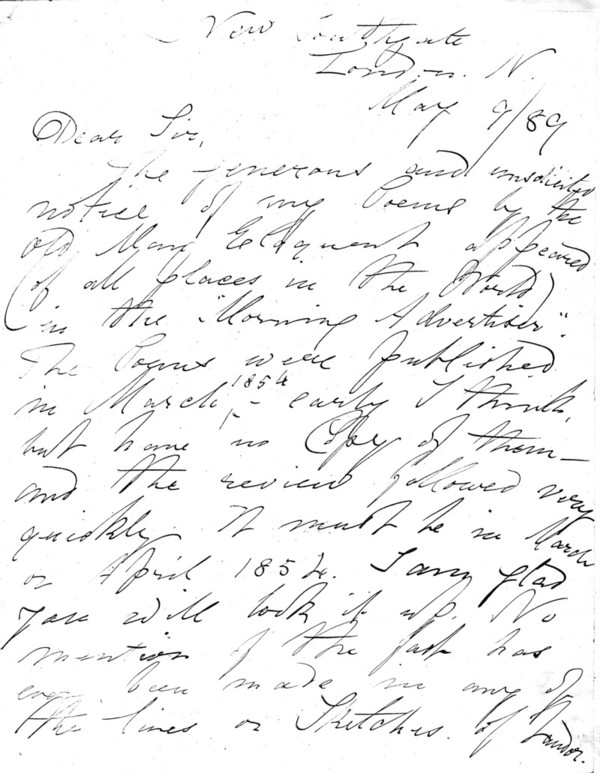 New Southgate
London. N.
May 9/89
Dear Sir,
The generous and unsolicited
notice of my Poems by the
old Man Eloquent appeared
(of all places in the World)
in the "Morning Advertiser".
The Poems were published
in March 1854 – early I think,
but have no Copy of them –
and the review followed very
quickly. It must be in March
or April 1854. I am glad
you will look it up. No
mention of the fact has
ever been made in any of
the lives or Sketches of Landor.